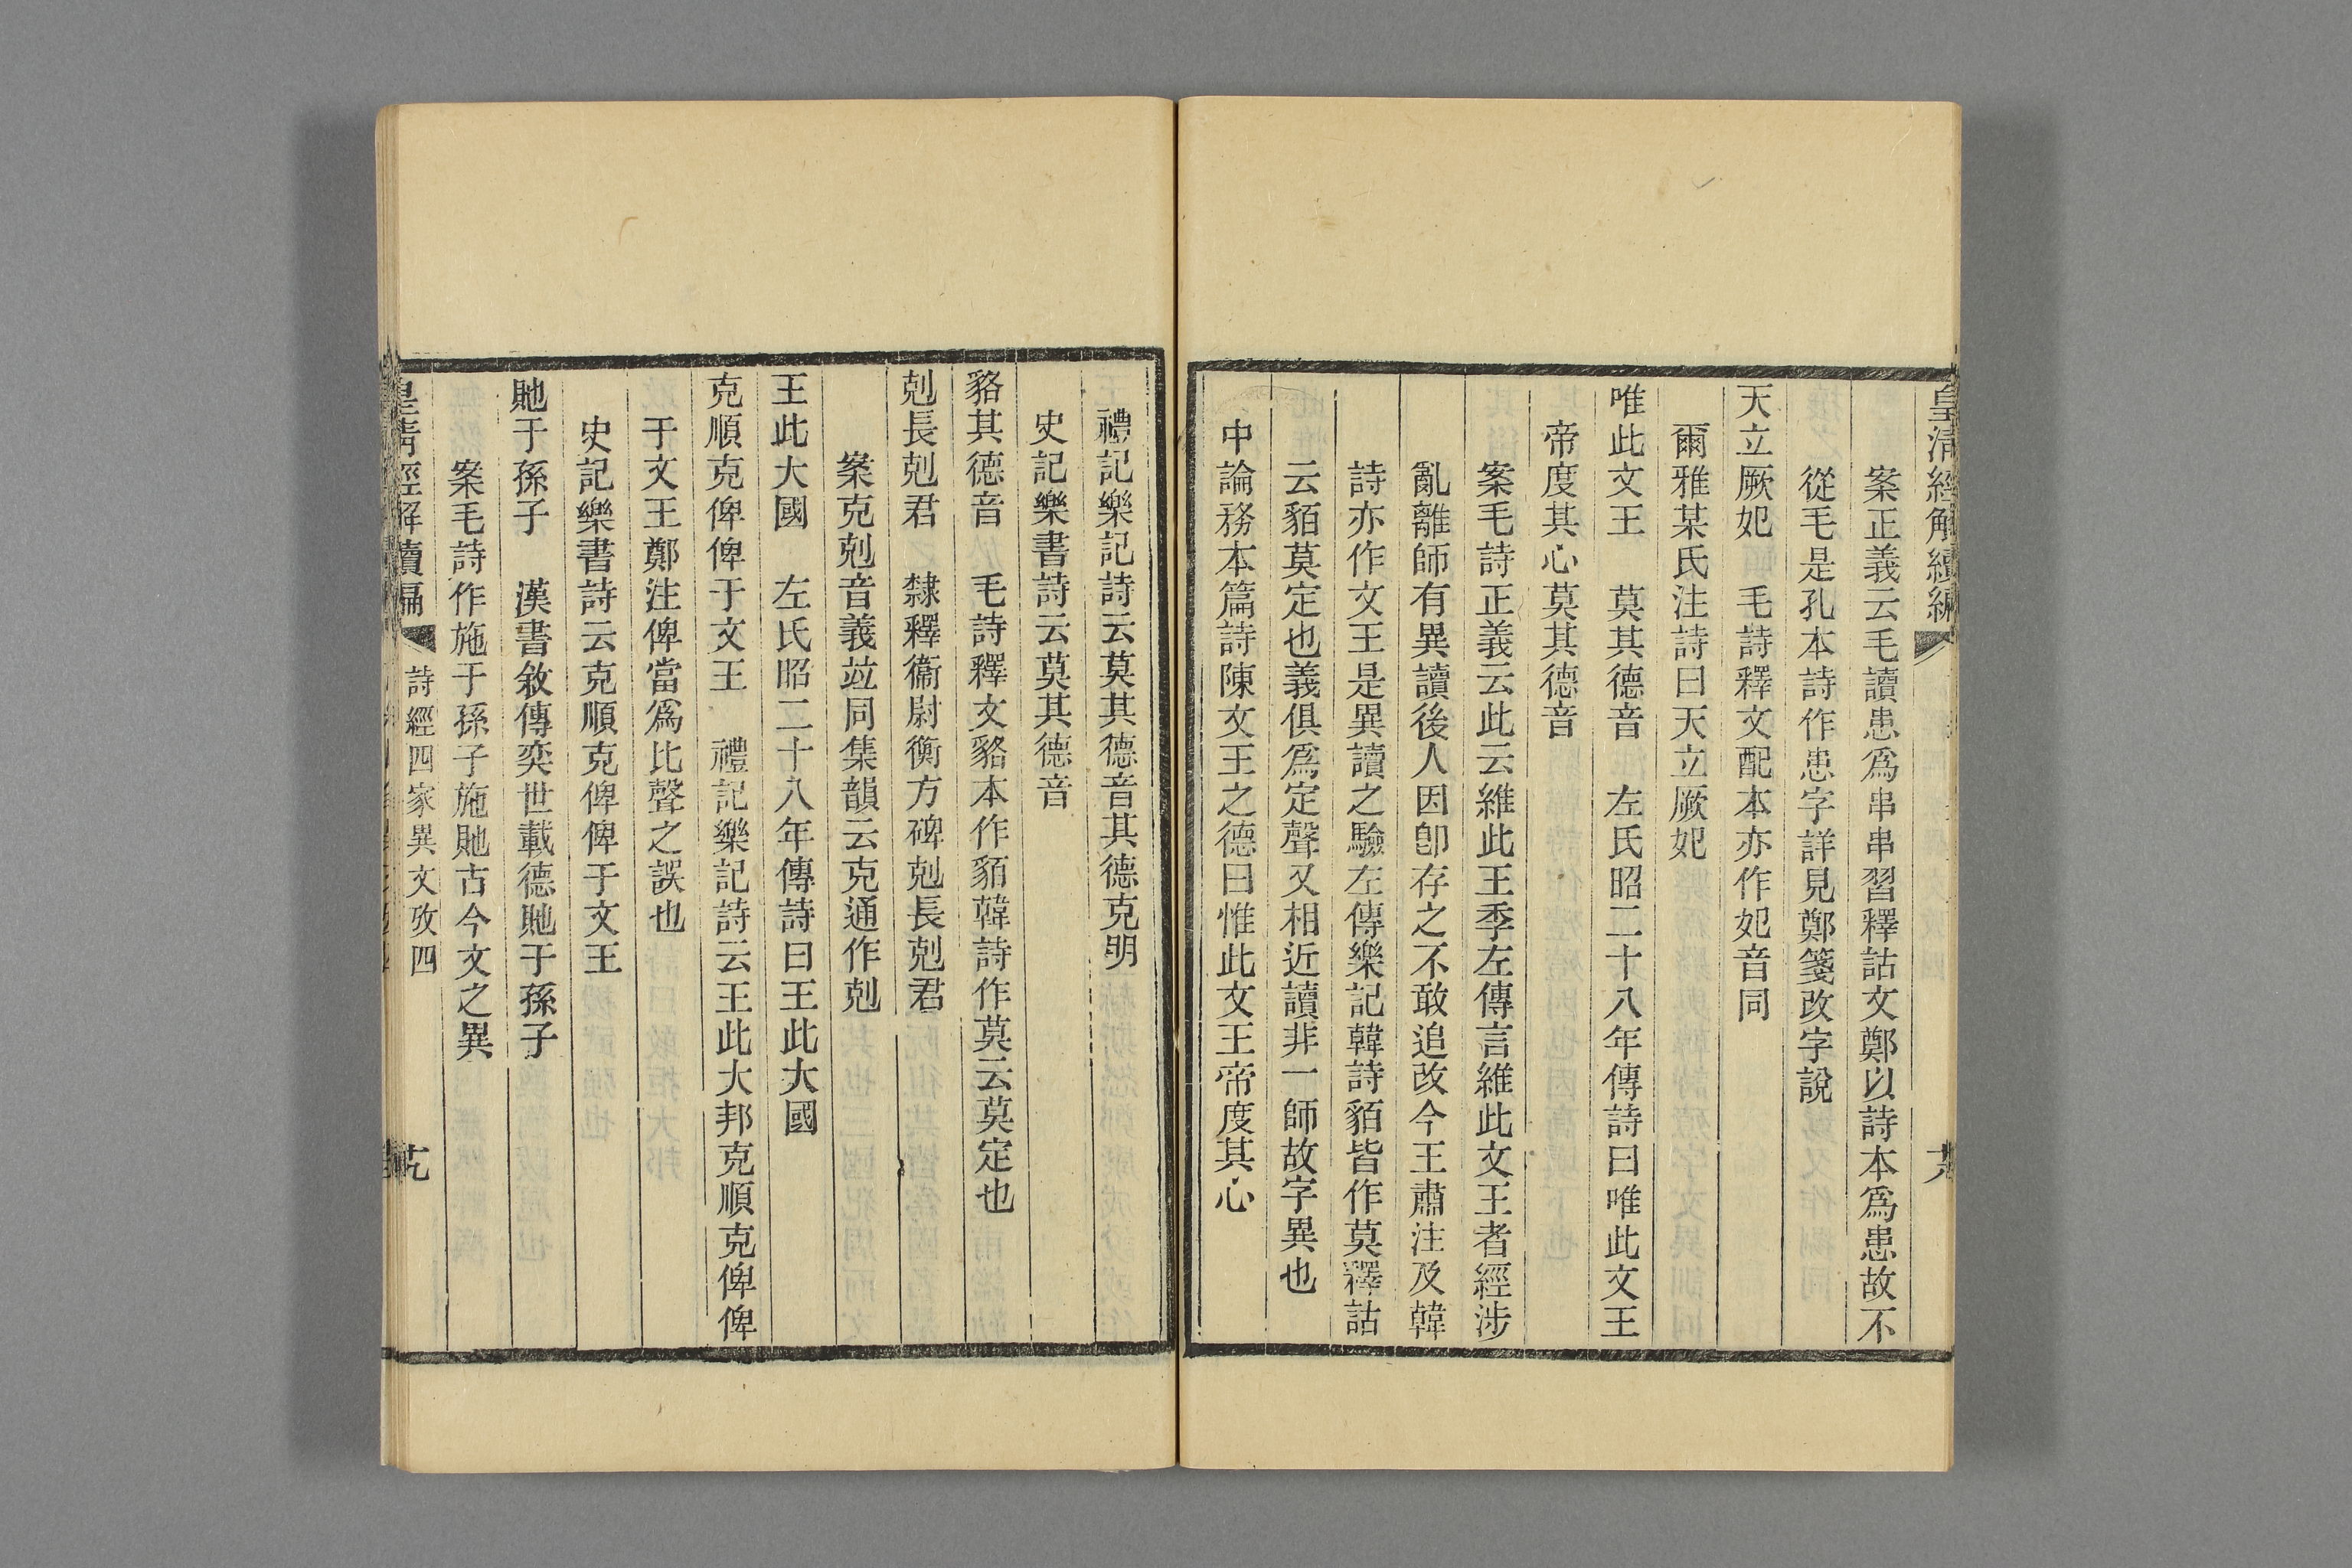 皇清經解續編
案正義云毛讀患爲串串習釋詁文鄭以詩本爲患故不
從毛是孔本詩作患字詳見鄭箋改字說
天立厥妃　毛詩釋文配本亦作妃音同
爾雅某氏注詩曰天立厥妃
唯此文王　莫其德音　左氏昭二十八年傳詩曰唯此文王
帝度其心莫其德音
案毛詩正義云此云維此王季左傳言維此文王者經涉
亂離師有異讀後人因卽存之不敢追改今王肅注及韓
詩亦作文王是異讀之驗左傳樂記韓詩貊皆作莫釋詁
云貊莫定也義俱爲定聲又相近讀非一師故字異也
中論務本篇詩陳文王之德曰惟此文王帝度其心
禮記樂記詩云莫其德音其德克明
史記樂書詩云莫其德音
貉其德音　毛詩釋文貉本作貊韓詩作莫云莫定也
剋長剋君　隸釋衞尉衡方碑剋長剋君
案克剋音義竝同集韻云克通作剋
王此大國　左氏昭二十八年傳詩曰王此大國
克順克俾俾于文王　禮記樂記詩云王此大邦克順克俾俾
于文王鄭注俾當爲比聲之誤也
史記樂書詩云克順克俾俾于文王
貤于孫子　漢書敘傳奕世載德貤于孫子
案毛詩作施于孫子施貤古今文之異
皇清經解續編　詩經四家異文攷四